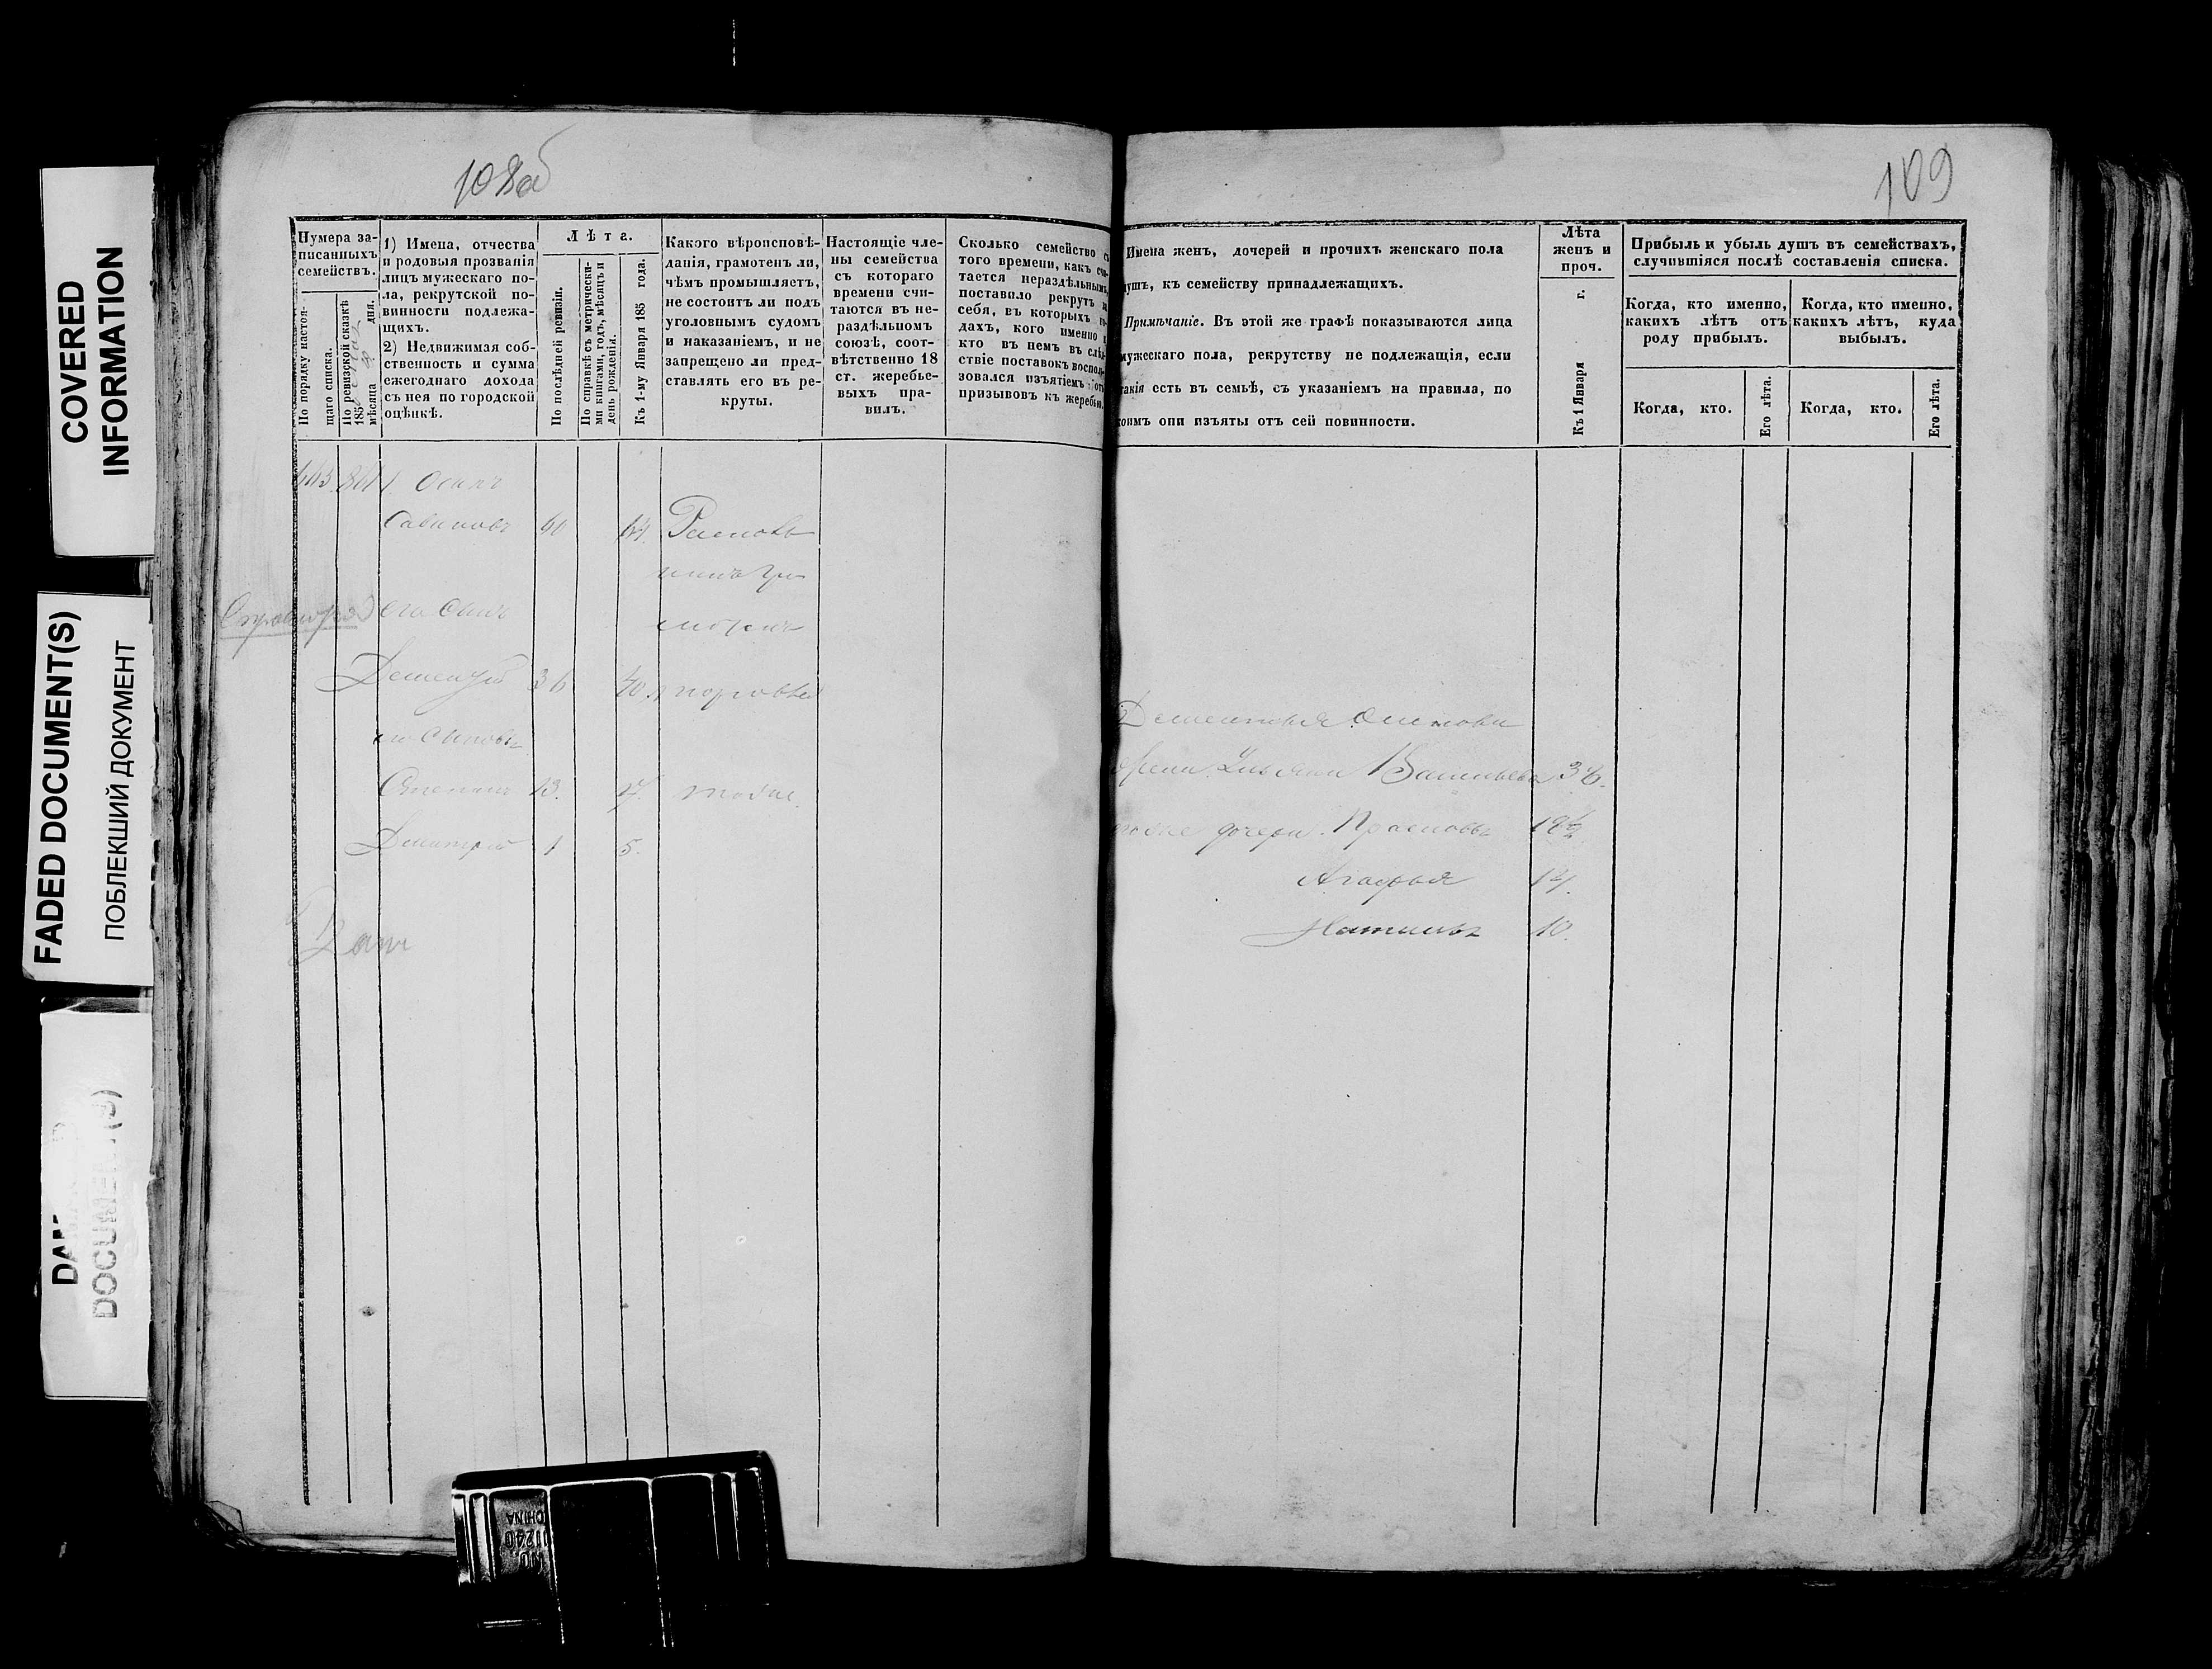 COVERED
INFORMATION
FADED DOCUMENT(S)
ПОБЛЕКШИЙ ДОКУМЕНТ
DOCUMENT(S)
108об
109
Нумера за-
писанныхъ
семействъ.
По порядку настоя-
щаго списка.
По ревизской сказкѣ
185
мѣсяца дня.
1) Имена, отчества
и родовыя прозванія
лицъ мужескаго по-
ла, рекрутской по-
винности подлежа-
щихъ.
2) Недвижимая соб-
ственность и сумма
ежегоднаго дохода
съ нея по городской
оцѣнкѣ.
Лѣта.
По послѣдней ревизіи.
По справкѣ съ метрически-
ми книгами, годъ, мѣсяцъ и
день рожденія.
Къ 1-му Января 185 года.
Какого вѣроисповѣ-
данія, грамотенъ ли,
чѣмъ промышляетъ,
не состоитъ ли подъ
уголовнымъ судомъ
и наказаніемъ, и не
запрещено ли пред-
ставлять его въ ре-
круты.
Настоящіе чле-
ны семейства
съ котораго
времени счи-
таются въ не-
раздѣльномъ
союзѣ, соот-
вѣтственно 18
ст. жеребье-
выхъ пра-
вилъ.
Сколько семейство съ
того времени, какъ счи-
тается нераздѣльнымъ,
поставило рекрутъ за
себя, въ которыхъ го-
дахъ, кого именно и
кто въ немъ въ слѣд-
ствіе поставокъ восполь-
зовался изъятіемъ отъ
призывовъ къ жеребью.
Имена женъ, дочерей и прочихъ женскаго пола
душъ, къ семейству принадлежащихъ.
Примѣчаніе. Въ этой же графѣ показываются лица
мужескаго пола, рекрутству не подлежащія, если
такія есть въ семьѣ, съ указаніемъ на правила, по
коимъ они изъяты отъ сей повинности.
Лѣта
женъ и
проч.
Къ 1 Января г.
Прибыль и убыль душъ въ семействахъ,
случившіяся послѣ составленія списка.
Когда, кто именно,
какихъ лѣтъ отъ
роду прибылъ.
Когда, кто именно,
какихъ лѣтъ, куда
выбылъ.
Когда, кто.
Его лѣта.
Когда, кто.
Его лѣта.
Осипъ
Савиновъ 60 64
его сынъ
Дементій 36 40
его сыновья
Степанъ 13. 17. тоже.
Дмитрій 1 5.
Дементья Осипова
жена Ульяна Васильева 36.
тоже дочери
Агафья 14.
Наталья 10.
NO.
01240
CHINA